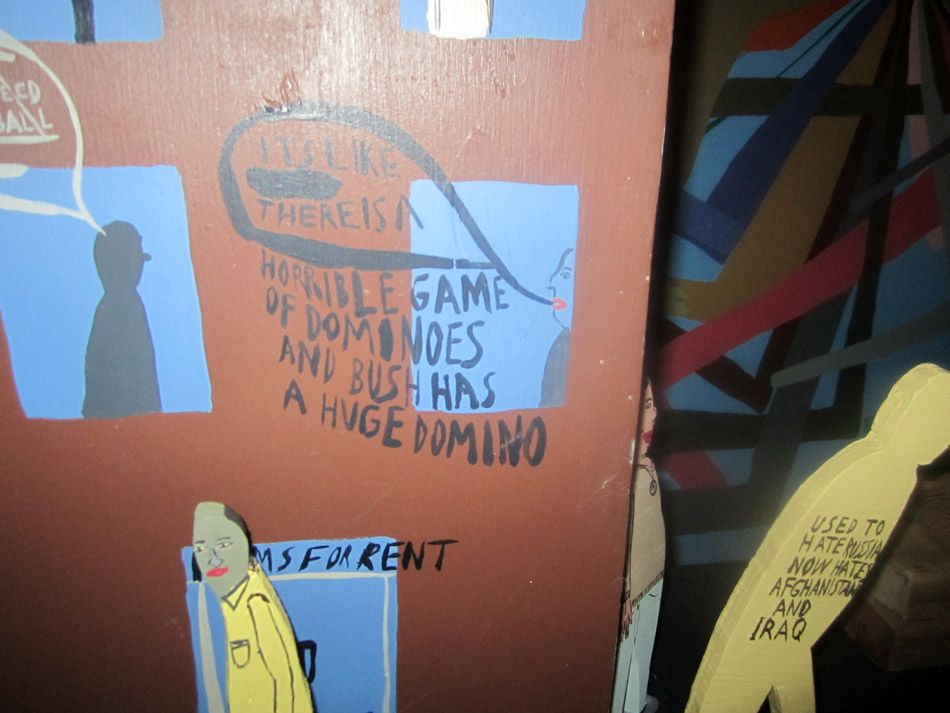 EED
BALL
ITS LIKE
THERE IS A
HORRIBLE GAME
OF DOMINOES
AND BUSH HAS
A HUGE DOMINO
MS FOR RENT
USED TO
HATE RUSSIA
NOW HATES
AFGHANISTAN
AND
IRAQ